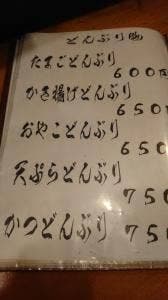 どんぶり物
たまごどんぶり
600円
かき揚げどんぶり
650
おやこどんぶり
650
天ぷらどんぶり
750
かつどんぶり
750